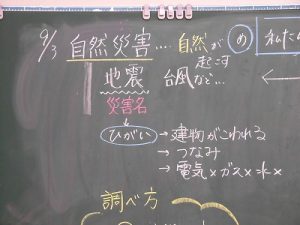 9/3 自然災害.... 自然が
起こす
め
私た
地震 台風 など...
災害名
ひがい → 建物がこわれる
→ つなみ
→ 電気× ガス× 水×
調べ方